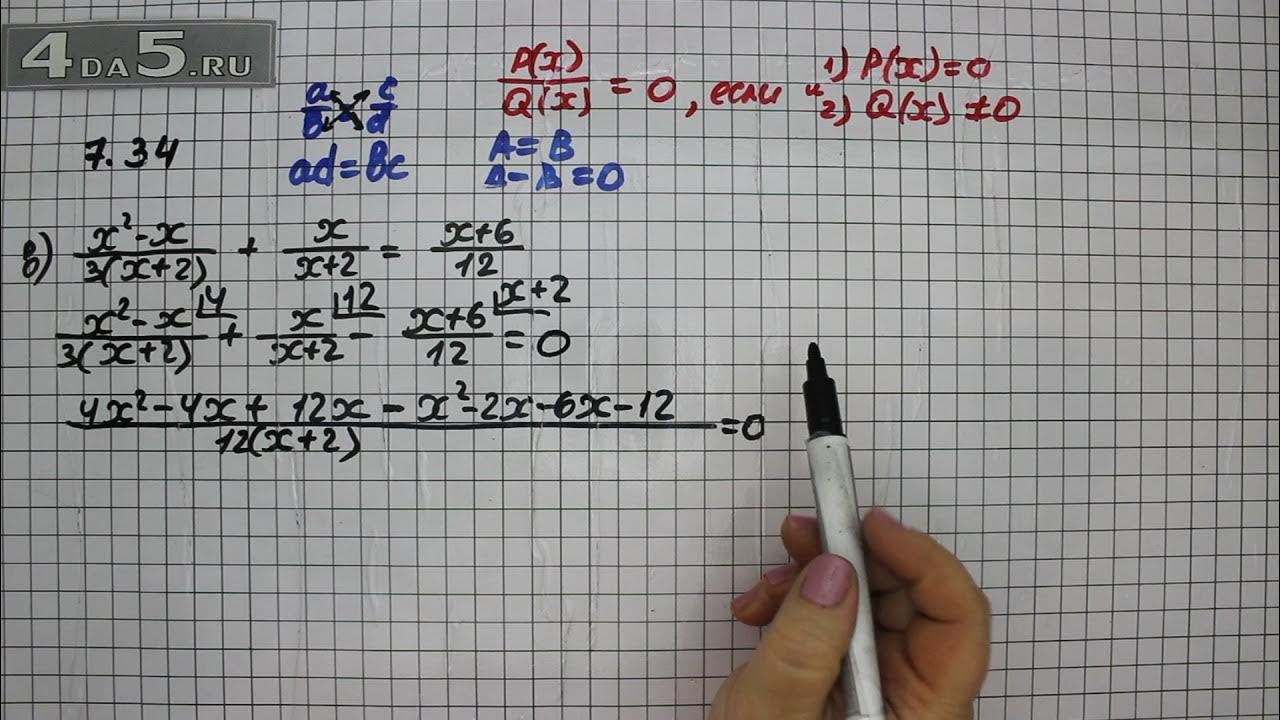 4ДА5.RU
a/b = c/d
ad = bc
P(x)/Q(x) = 0, если 1) P(x)=0 и 2) Q(x) ≠ 0
A = B
A - B = 0
7.34
в) (x² - x)/(3(x+2)) + x/(x+2) = (x+6)/12
(x² - x)⌊4/(3(x+2)) + x⌊12/(x+2) - (x+6)⌊x+2/12 = 0
(4x² - 4x + 12x - x² - 2x - 6x - 12)/(12(x+2)) = 0